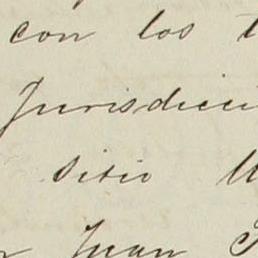 con los
Jurisdicci
Sitio
Juan